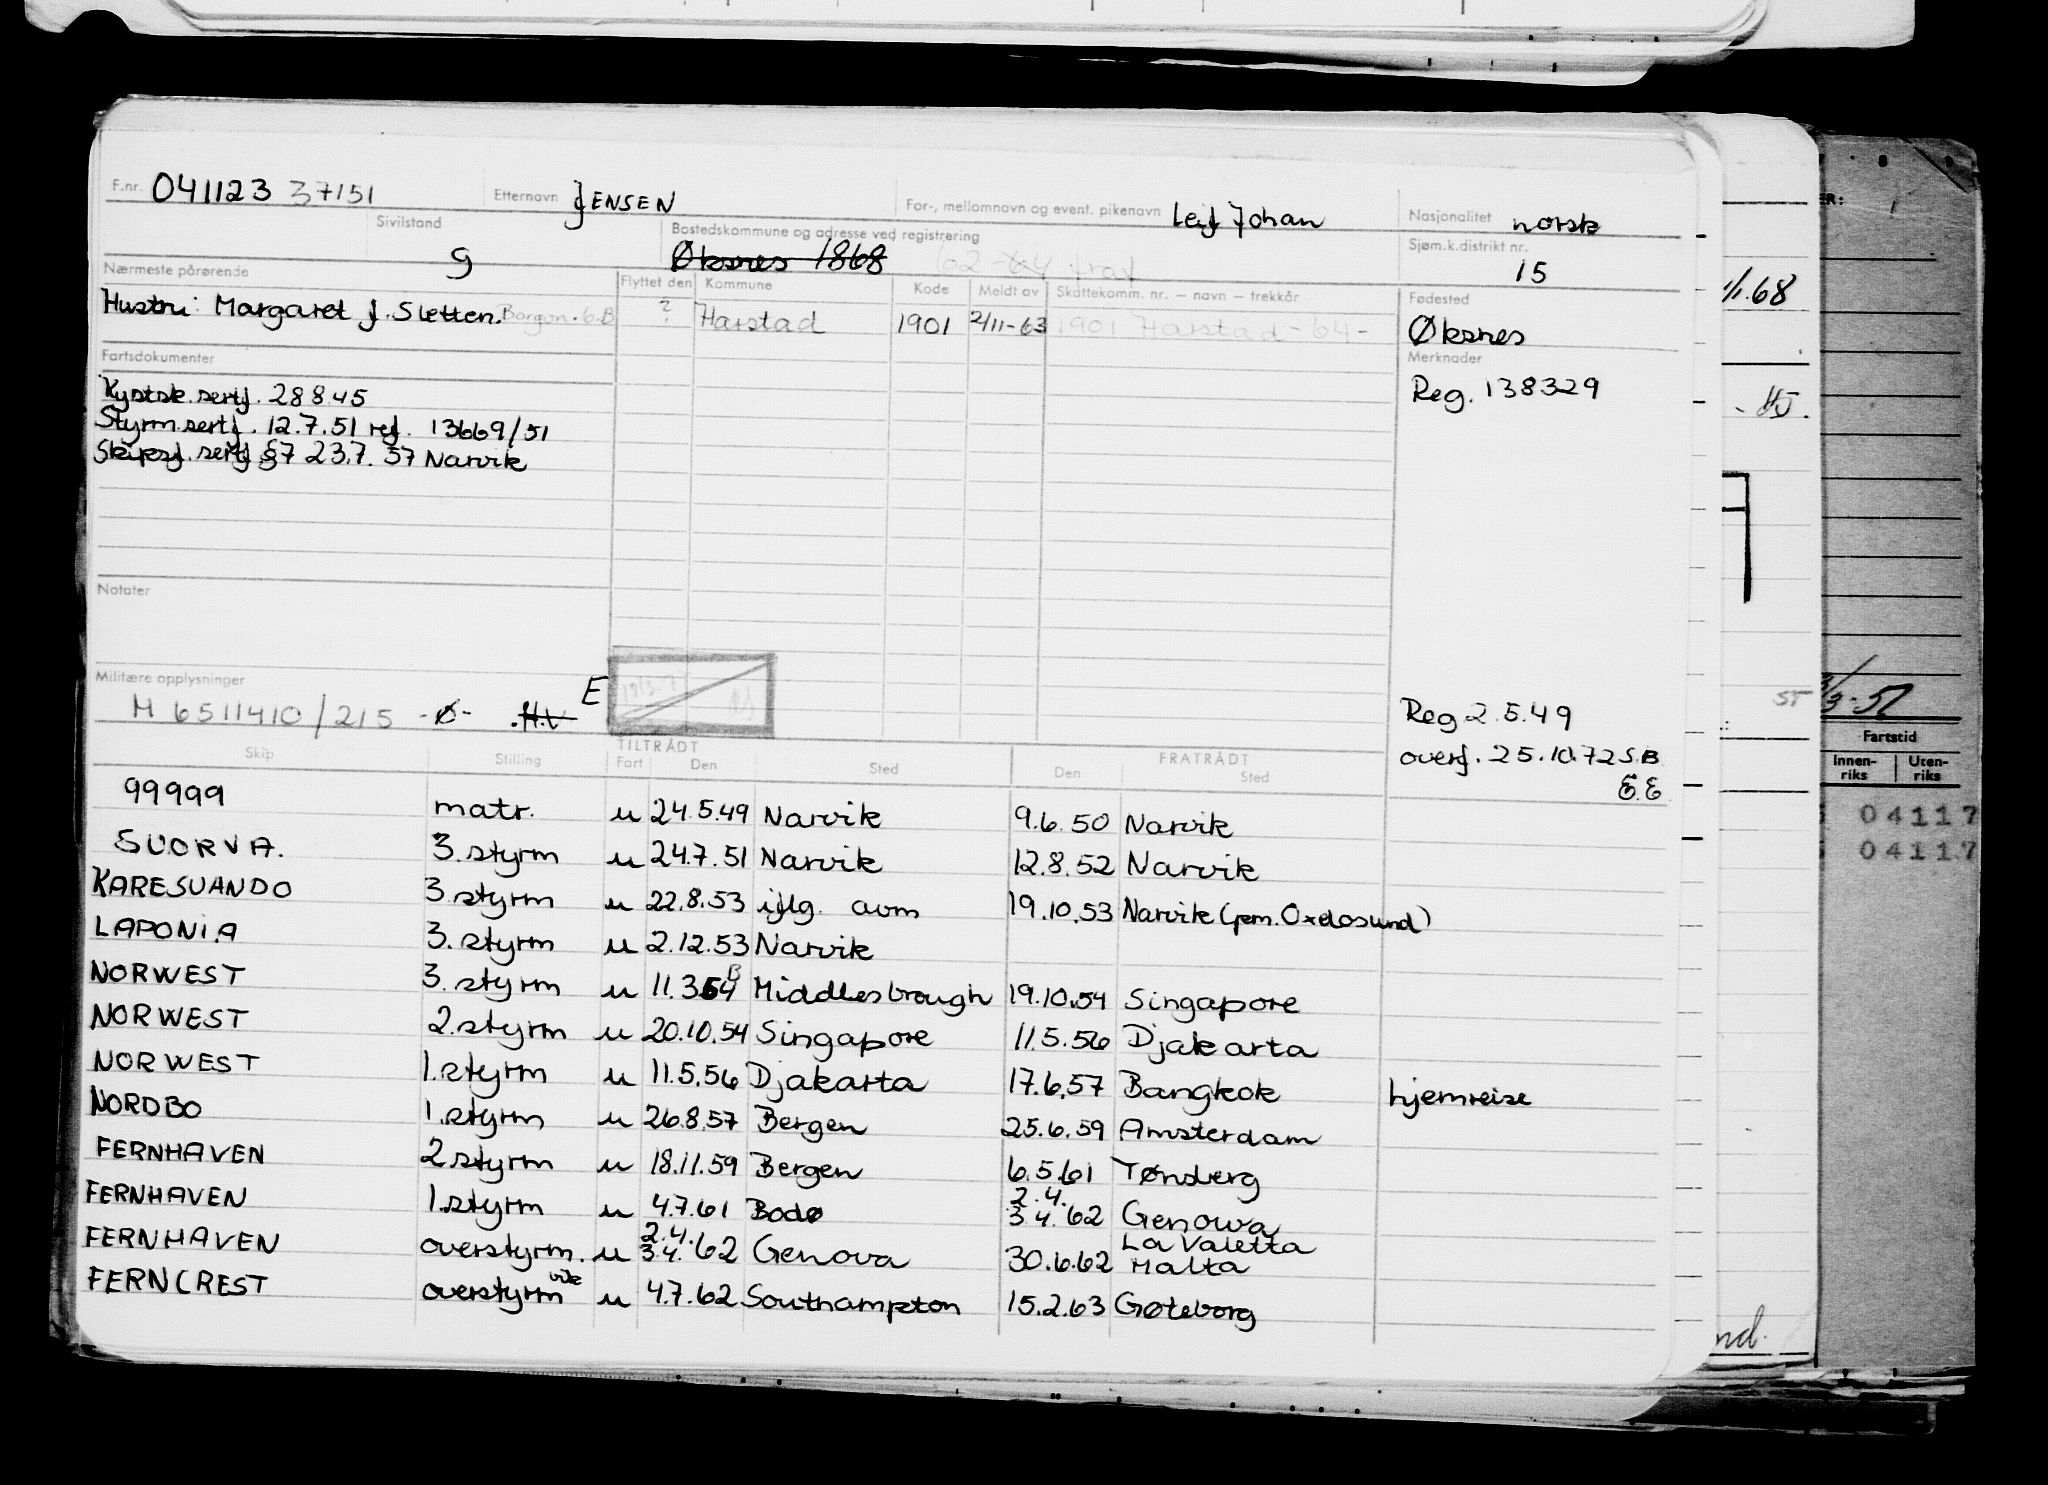 F.nr. 041123 37151 Etternavn JENSEN For-, mellomnavn og event. pikenavn Leif Johan Nasjonalitet norsk
Sivilstand g Bostedskommune og adresse ved registrering Øksnes 1868 Sjøm.k.distrikt nr. 15
Nærmeste pårørende Flyttet den Kommune Kode Meldt av Skattekomm. nr. – navn – trekkår Fødested
Hustru: Margaret f. Sletten. Borgvn. 6.B ? Harstad 1901 2/11-63 1901 Harstad - 64 - Øksnes
Fartsdokumenter Merknader
Kystsk. sertf. 28845 Reg. 138329
Styrm.sertf. 12.7.51 ref. 13669/51
Skipsf. sertf. §7 23.7.57 Narvik
Notater
Militære opplysninger E
M 6511410/215 -Ø- .H.V Reg 2.5.49
overf. 25.10.72 S.B.
E.E
Skip Stilling TILTRÅDT Fart Den Sted FRATRÅDT Den Sted
99999 matr. u 24.5.49 Narvik 9.6.50 Narvik
SUORVA. 3.styrm u 24.7.51 Narvik 12.8.52 Narvik
KARESUANDO 3.styrm u 22.8.53 iflg. avm 19.10.53 Narvik (pem. Oxelosund)
LAPONIA 3.styrm u 2.12.53 Narvik
NORWEST 3.styrm u 11.3.54 B Middlesbrough 19.10.54 Singapore
NORWEST 2.styrm u 20.10.54 Singapore 11.5.56 Djakarta
NORWEST 1.styrm u 11.5.56 Djakarta 17.6.57 Bangkok hjemreise
NORDBO 1.styrm u 26.8.57 Bergen 25.6.59 Amsterdam
FERNHAVEN 2.styrm u 18.11.59 Bergen 6.5.61 Tønsberg
FERNHAVEN 1.styrm u 4.7.61 Bodø 2.4. 3.4.62 Genowa
FERNHAVEN overstyrm. u 2.4. 3.4.62 Genova 30.6.62 La Valetta Malta
FERNCREST overstyrm vik u 4.7.62 Southampton 15.2.63 Gøteborg
1/1.68
Fartstid
Innen-riks Uten-riks
04117
04117
nd.